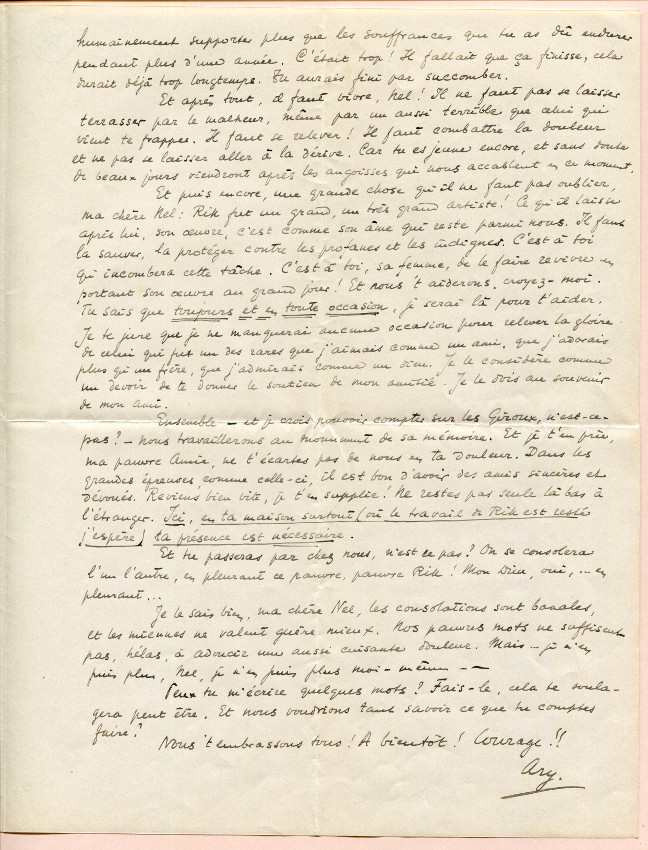 humainement supporter plus que les souffrances que tu as dû endurer
pendant plus d'une année. C'était trop! Il fallait que ça finisse, cela
durait déjà trop longtemps. Tu aurais fini par succomber.
Et après tout, il faut vivre, Nel! Il ne faut pas se laisser
terrasser par le malheur, même par un aussi terrible que celui qui
vient te frapper. Il faut se relever! Il faut combattre la douleur
et ne pas se laisser aller à la dérive. Car tu es jeune encore, et sans doute
de beaux jours viendront après les angoisses qui nous accablent en ce moment.
Et puis encore, une grande chose qu'il ne faut pas oublier,
ma chère Nel: Rik fut un grand, un très grand artiste! Ce qu'il laisse
après lui, son œuvre, c'est comme son âme qui reste parmi nous. Il faut
la sauver, la protéger contre les profanes et les indignes. C'est à toi
qu'incombera cette tâche. C'est à toi, sa femme, de le faire revivre en
portant son œuvre au grand jour! Et nous t'aiderons, croyez-moi.
Tu sais que toujours et en toute occasion, je serai là pour t'aider.
Je te jure que je ne manquerai aucune occasion pour relever la gloire
de celui qui fut un des rares que j'aimais comme un ami, que j'adorais
plus qu'un frère, que j'admirais comme un dieu. Je le considère comme
un devoir de te donner le soutien de mon amitié. Je le dois au souvenir
de mon ami.
Ensemble – et je crois pouvoir compter sur les Giroux, n'est-ce-
pas? – nous travaillerons au monument de sa mémoire. Et je t'en prie,
ma pauvre Amie, ne t'écartes pas de nous en ta douleur. Dans les
grandes épreuves comme celle-ci, il est bon d'avoir des amis sincères et
dévoués. Reviens bien vite, je t'en supplie! Ne restes pas seule là bas à
l'étranger. Ici, en ta maison surtout (où le travail de Rik est resté
j'espère) ta présence est nécessaire.
Et tu passeras par chez nous, n'est ce pas? On se consolera
l'un l'autre, en pleurant ce pauvre, pauvre Rik! Mon Dieu, oui, ... en
pleurant...
Je le sais bien, ma chère Nel, les consolations sont banales,
et les miennes ne valent guère mieux. Nos pauvres mots ne suffisent
pas, hélas, à adoucir une aussi cuisante douleur. Mais... je n'en
puis plus, Nel, je n'en puis plus moi-même – –
Peux tu m'écrire quelques mots? Fais-le, cela te soula-
gera peut être. Et nous voudrions tant savoir ce que tu comptes
faire?
Nous t'embrassons tous! A bientôt! Courage!!
Ary.